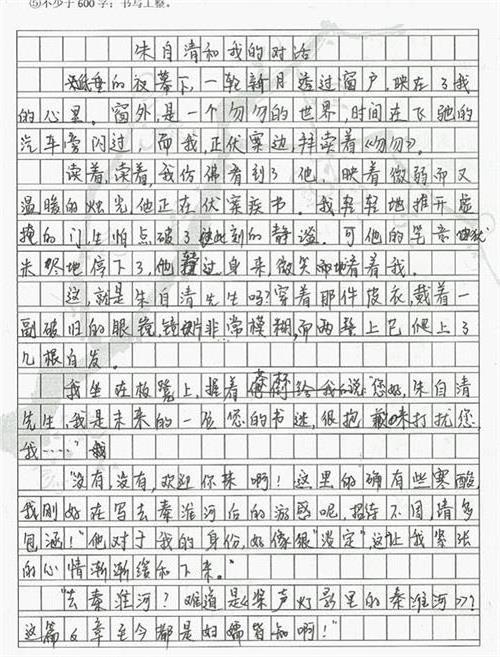 ⑤不少于600字；书写工整。
朱自清和我的对话
的夜幕下，一轮新月透过窗户，映在了我
的心里。窗外，是一个匆匆的世界，时间在飞驰的
汽车旁闪过，而我，正伏案边，拜读着《匆匆》。
读着，读着，我仿佛看到了他，映着微弱而又
温暖的烛光，他正在伏案疾书。我轻轻地推开虚
掩的门，生怕点破了此刻的静谧。可他的笔
地停下了，他转过身来，微笑地看着我。
这，就是朱自清先生吗？穿着那件皮衣，戴着一
副破旧的眼镜，镜片非常模糊，而两鬓上已爬上了
几根白发。
我坐在板凳上，握着 说"您好，朱自清
先生，我是未来的一位您的书迷，很抱歉来打扰您，
我……"
"没有，没有，欢迎你来啊！这里的确有些寒酸，
我刚好在写去秦淮河后的游感呢，招待不周，请多
包涵！"他对于我的身份，好像很"淡定"，这让我紧张
的心情渐渐缓和下来。
"去秦淮河？难道是《桨声灯影里的秦淮河》？
这篇文章至今都是妇孺皆知啊！"